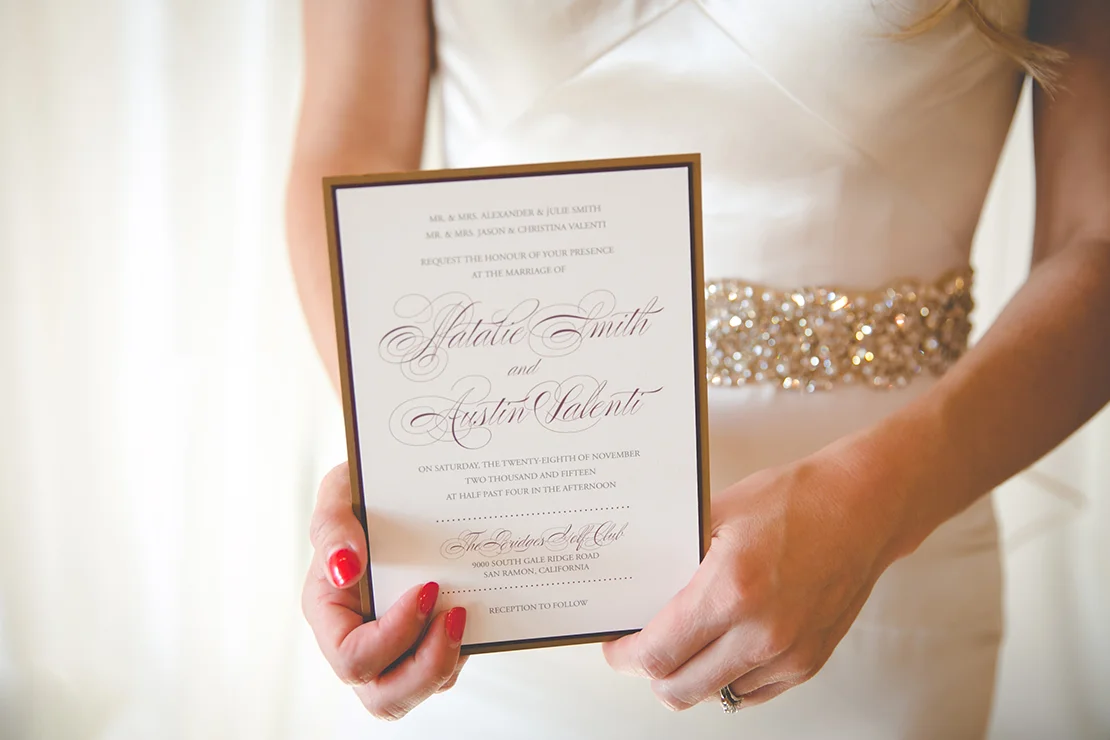 MR. & MRS. ALEXANDER & JULIE SMITH
MR. & MRS. JASON & CHRISTINA VALENTI
REQUEST THE HONOUR OF YOUR PRESENCE
AT THE MARRIAGE OF
Natalie Smith
and
Austin Valenti
ON SATURDAY, THE TWENTY-EIGHTH OF NOVEMBER
TWO THOUSAND AND FIFTEEN
AT HALF PAST FOUR IN THE AFTERNOON
The Bridges Golf Club
9000 SOUTH GALE RIDGE ROAD
SAN RAMON, CALIFORNIA
RECEPTION TO FOLLOW